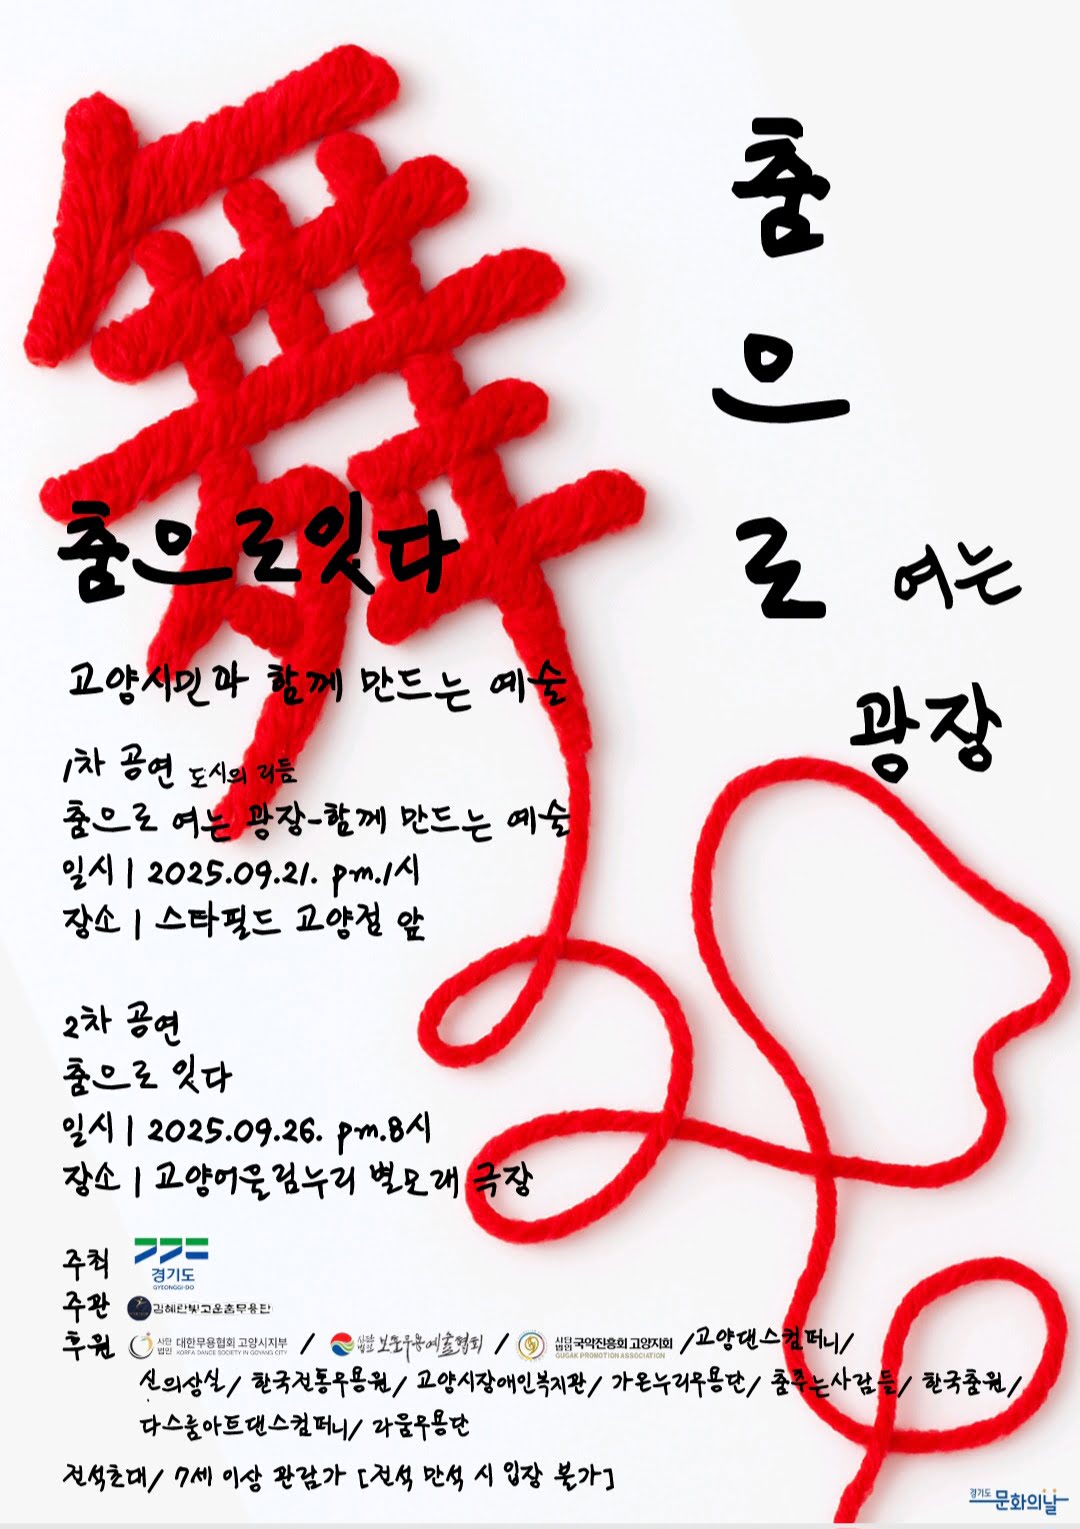 舞
춤
으
로 여는
광장
춤으로잇다
고양시민과 함께 만드는 예술
1차 공연 도시의 리듬
춤으로 여는 광장-함께 만드는 예술
일시 | 2025.09.21. pm.1시
장소 | 스타필드 고양점 앞
2차 공연
춤으로 잇다
일시 | 2025.09.26. pm.8시
장소 | 고양어울림누리 별모래 극장
주최 경기도 GYEONGGI-DO
주관 김혜란빛고운춤무용단
후원 사단법인 대한무용협회 고양시지부 KOREA DANCE SOCIETY IN GOYANG CITY / 사단법인 보훈무용예술협회 / 사단법인 국악진흥회 고양지회 GUGAK PROMOTION ASSOCIATION / 고양댄스컴퍼니/
신의상실/ 한국전통무용원/ 고양시장애인복지관/ 가온누리무용단/ 춤추는사람들/ 한국춤원/
다스름아트댄스컴퍼니/ 라움무용단
전석초대/ 7세 이상 관람가 [전석 만석 시 입장 불가]
경기도 문화의날